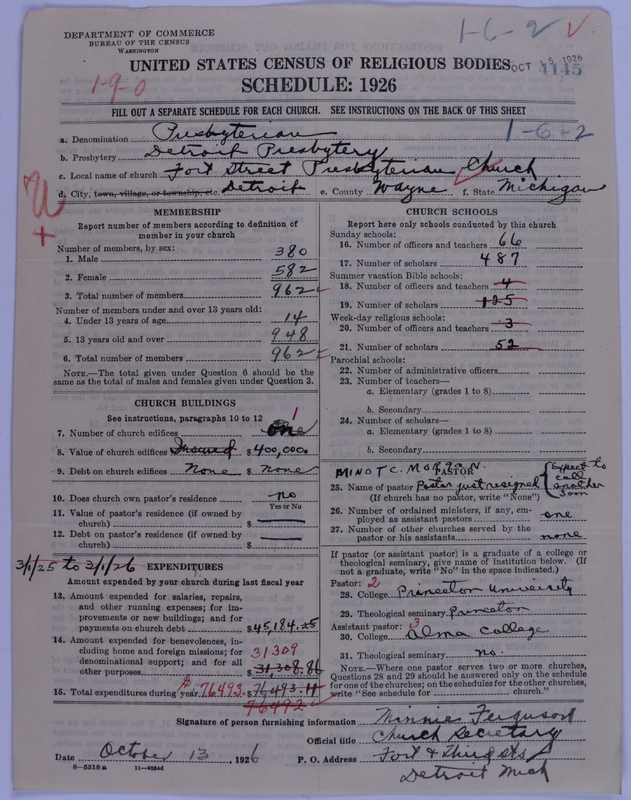 DEPARTMENT OF COMMERCE
BUREAU OF THE CENSUS
WASHINGTON
1-6-2 ✓
UNITED STATES CENSUS OF RELIGIOUS BODIES
OCT 15 1926
4145
1-9-0
SCHEDULE: 1926
FILL OUT A SEPARATE SCHEDULE FOR EACH CHURCH. SEE INSTRUCTIONS ON THE BACK OF THIS SHEET
a. Denomination Presbyterian
1-6-2
b. Presbytery Detroit Presbytery
c. Local name of church Fort Street Presbyterian Church
d. City, town, village, or township, etc. Detroit e. County Wayne f. State Michigan
MEMBERSHIP
Report number of members according to definition of
member in your church
Number of members, by sex:
1. Male 380
2. Female 582
3. Total number of members 962
Number of members under and over 13 years old:
4. Under 13 years of age 14
5. 13 years old and over 948
6. Total number of members 962
NOTE.—The total given under Question 6 should be the
same as the total of males and females given under Question 3.
CHURCH BUILDINGS
See instructions, paragraphs 10 to 12
1
7. Number of church edifices one
8. Value of church edifices Insured $ 400,000
9. Debt on church edifices None $ None
10. Does church own pastor's residence no
Yes or No
11. Value of pastor's residence (if owned by
church) $
12. Debt on pastor's residence (if owned by
church) $
3/1/25 to 3/1/26 EXPENDITURES
Amount expended by your church during last fiscal year
13. Amount expended for salaries, repairs,
and other running expenses; for im-
provements or new buildings; and for
payments on church debt $45,184.25
14. Amount expended for benevolences, in-
cluding home and foreign missions; for
denominational support; and for all
other purposes $ 31,308.86
31309
15. Total expenditures during year $ 76493 $ 76493.11
76492
CHURCH SCHOOLS
Report here only schools conducted by this church
Sunday schools:
16. Number of officers and teachers 66
17. Number of scholars 487
Summer vacation Bible schools:
18. Number of officers and teachers 4
19. Number of scholars 125
Week-day religious schools:
20. Number of officers and teachers 3
21. Number of scholars 52
Parochial schools:
22. Number of administrative officers
23. Number of teachers—
a. Elementary (grades 1 to 8)
b. Secondary
24. Number of scholars—
a. Elementary (grades 1 to 8)
b. Secondary
PASTOR
MINOT C. MORGAN.
25. Name of pastor Pastor just resigned
Expect to
call
another
soon
(If church has no pastor, write "None")
26. Number of ordained ministers, if any, em-
ployed as assistant pastors one
27. Number of other churches served by the
pastor or his assistants none
If pastor (or assistant pastor) is a graduate of a college or
theological seminary, give name of institution below. (If
not a graduate, write "No" in the space indicated.)
Pastor: 2
28. College Princeton University
29. Theological seminary Princeton
Assistant pastor: 3
30. College Alma College
31. Theological seminary no.
NOTE.—Where one pastor serves two or more churches,
Questions 28 and 29 should be answered only on the schedule
for one of the churches; on the schedules for the other churches,
write "See schedule for church."
Signature of person furnishing information Minnie Ferguson
Official title Church Secretary
Date October 13, 1926 P. O. Address Fort & Third sts
Detroit Mich
8-5518a 11-9054d